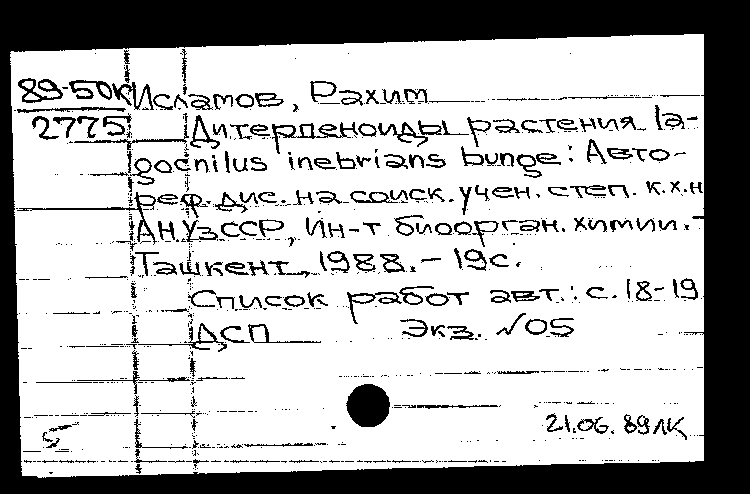 89-50К Исламов, Рахим
2775 Дитерпеноиды растения la-
gocnilus inebrians bunge: Авто-
реф. дис. на соиск. учен. степ. к.х.н
АН УзССР, Ин-т биоорган. химии. -
Ташкент, 1988. - 19с.
Список работ авт.: с. 18-19
ДСП Экз. №05
21.06.89ЛК
5